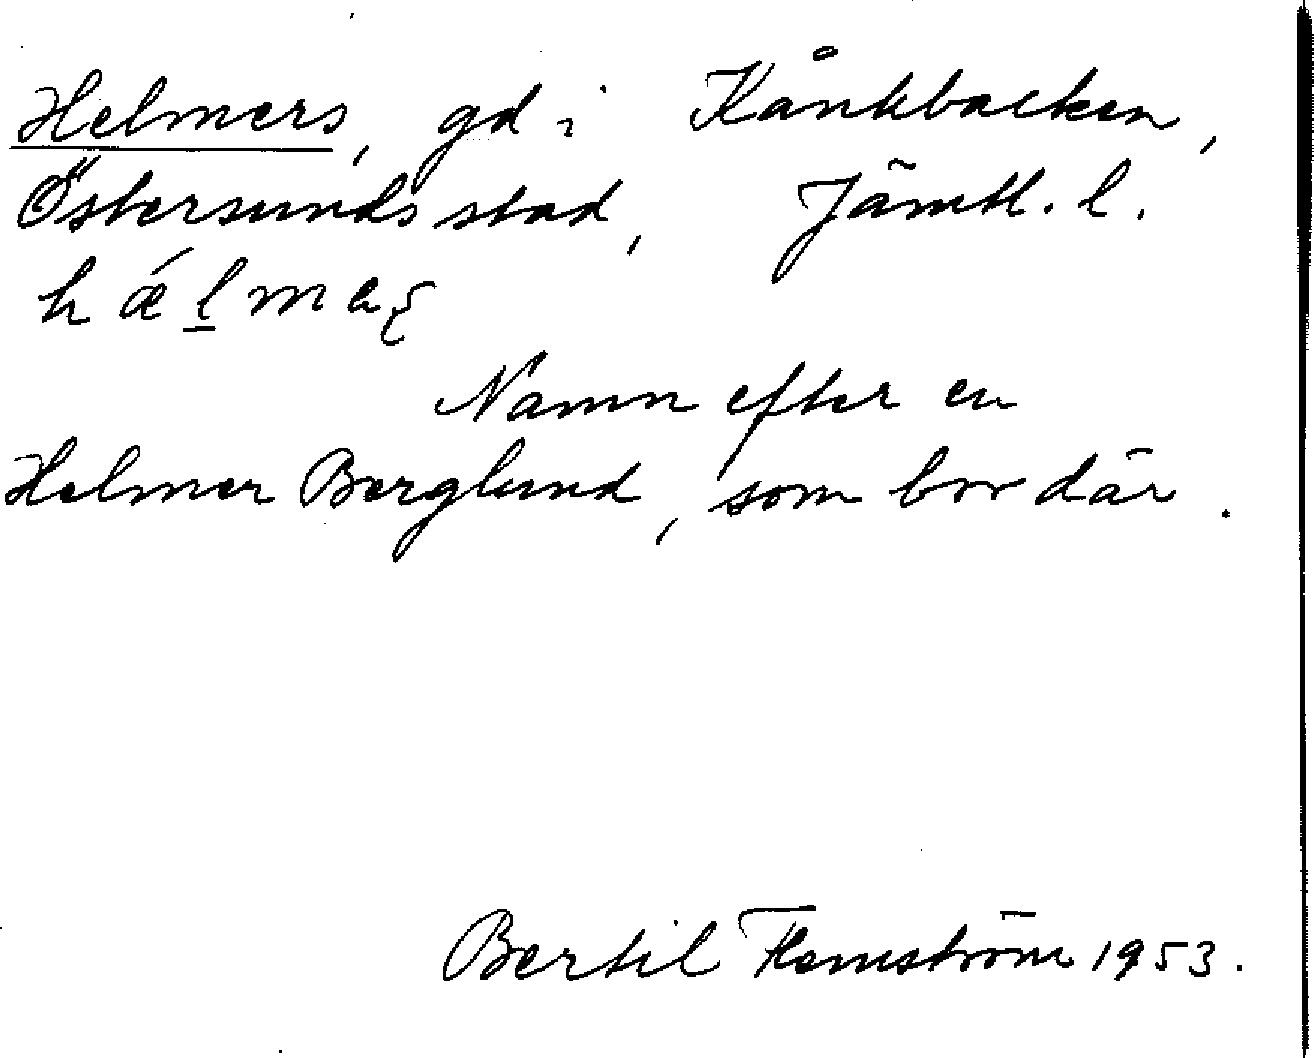 Helmers, gd i Kånkbacken,
Östersunds stad, Jämtl. l.
hǽl̲meʂ
Namn efter en
Helmer Berglund, som bor där.
Bertil Flemström 1953.